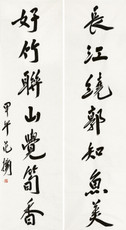 長江繞郭知魚美
好竹聯山覺筍香
甲午